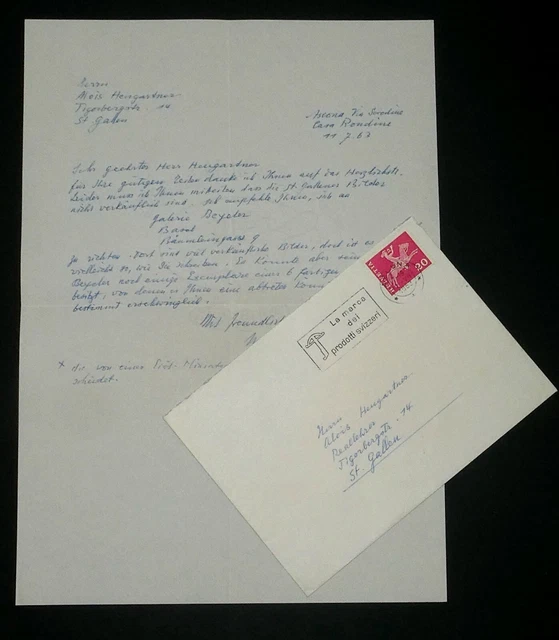 Herrn
Alois Hengartner
Tigerbergstr. 14
St. Gallen
Ascona Via Serodine
Casa Rondine
11.7.63
Sehr geehrter Herr Hengartner
für Ihre gütigen Zeilen danke ich Ihnen auf das Herzlichste.
Leider muss ich Ihnen mitteilen dass die St. Gallener Bilder
nicht verkäuflich sind. Ich empfehle Ihnen, sich an
Galerie Beyeler
Basel
Bäumleingasse 9
zu richten. Dort sind viel verkäufliche Bilder, doch ist es
vielleicht so, wie Sie schreiben. So könnte aber
Beyeler noch einige Exemplare einer 6 farbigen
besitzt, von denen er Ihnen eine abtreten
bestimmt erschwinglich.
Mit freundlich
* die von einer
HELVETIA
20
La marca
dei
prodotti svizzeri
Herrn
Alois Hengartner
Reallehrer
Tigerbergstr. 14
St. Gallen